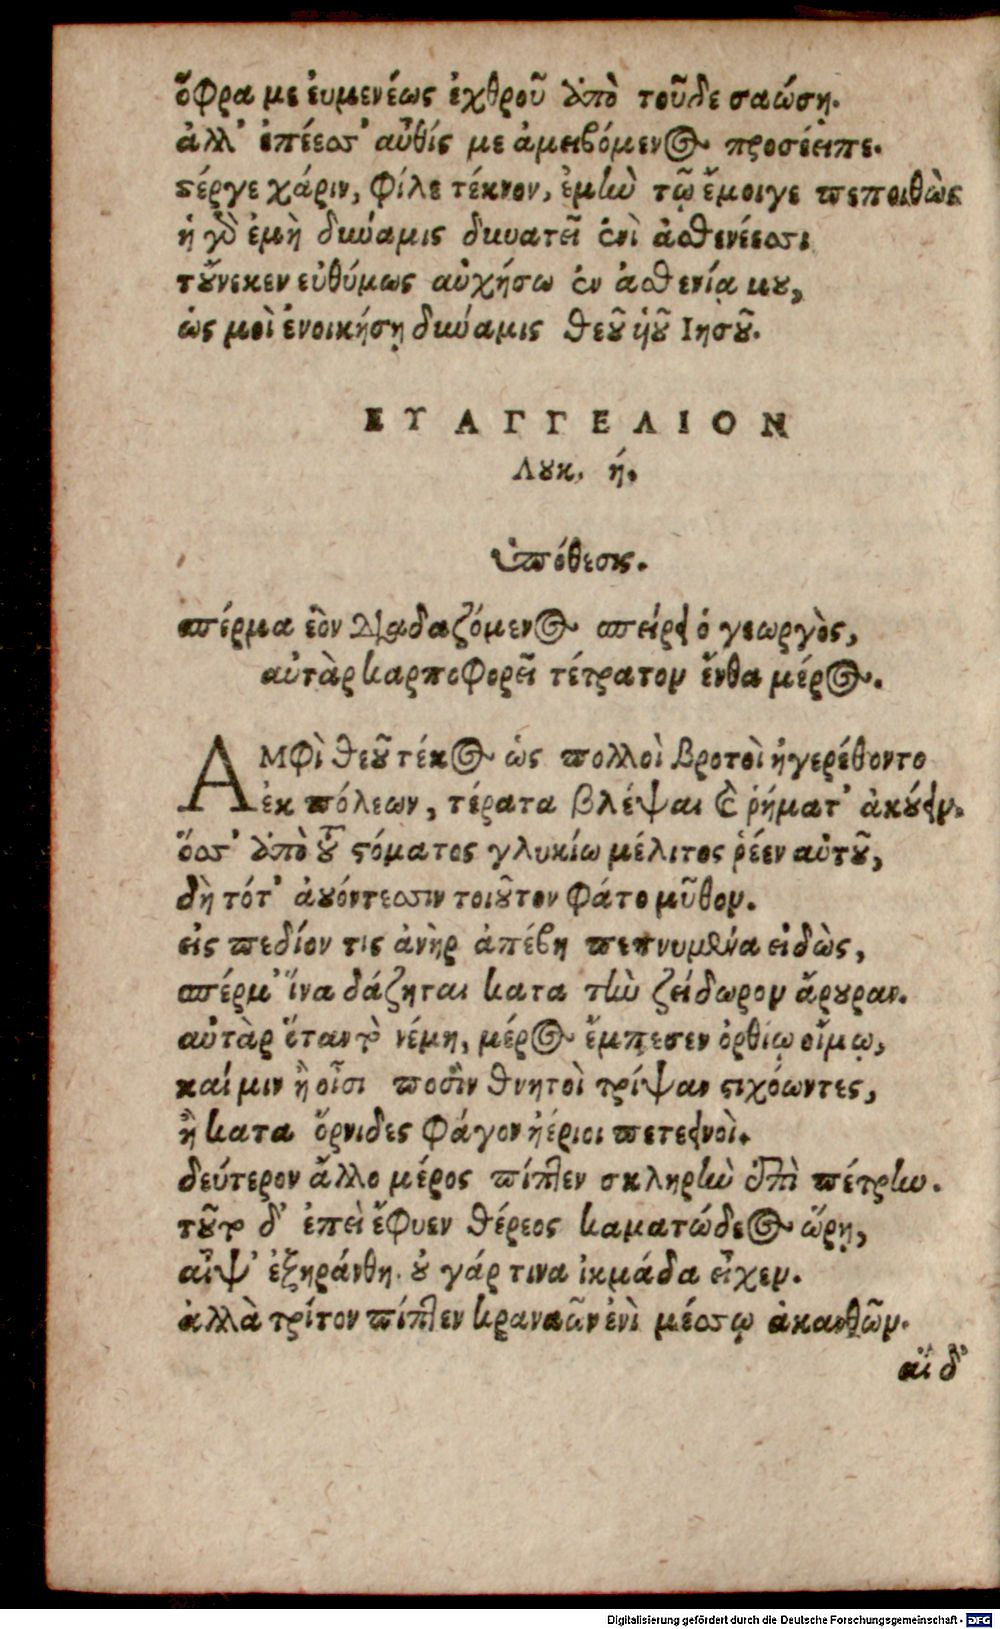 ὄφρα με ἐυμενέως ἐχθροῦ ἀπὸ τοῦδε σαώσῃ.
ἀλλ' ἐπέεσσ' αὖθίς με ἀμειβόμενος προσέειπε.
στέργε χάριν, φίλε τέκνον, ἐμὴν τῷ ἔμοιγε πεποιθὼς
ἡ γὸ ἐμὴ δύναμις δυνατεῖ ἐνὶ ἀσθενέεσσι
τοὔνεκεν εὐθύμως αὐχήσω ἐν ἀσθενίᾳ μου,
ὡς μοὶ ἐνοικήσῃ δύναμις θεοῦ ὑοῦ Ιησοῦ.
ΕΥΑΓΓΕΛΙΟΝ
Λουκ. ή.
Ὑπόθεσις.
σπέρμα ἐὸν διαδαζόμενος σπείρει ὁ γεωργὸς,
αὐτὰρ καρποφορεῖ τέτρατον ἔνθα μέρος.
ΑΜΦὶ θεοῦ τέκος ὡς πολλοὶ βροτοὶ ἠγερέθοντο
ἐκ πόλεων, τέρατα βλέψαι καὶ ῥήματ' ἀκούειν.
ὅσσ' ἀπὸ τοῦ στόματος γλυκίω μέλιτος ῥέεν αὐτοῦ,
δὴ τότ' ἀυόντεσσιν τοιοῦτον φάτο μῦθον.
εἰς πεδίον τις ἀνὴρ ἀπέβη πεπνυμένα εἰδὼς,
σπέρμ' ἵνα δάζηται κατα τὴν ζείδωρον ἄρουραν.
αὐτὰρ ὅταν τὸ νέμῃ, μέρος ἔμπεσεν ὀρθίῳ οἴμῳ,
καί μιν ἢ οἷσι ποσὶν θνητοὶ τρίψαν στιχόωντες,
ἢ κατα ὄρνιδες φάγον ἠέριοι πετεεινοὶ.
δεύτερον ἄλλο μέρος πίπτεν σκληρὴν ἐπὶ πέτρην.
τοῦτο δ' ἐπεὶ ἔφυεν θέρεος καματώδεος ὥρῃ,
αἶψ' ἐξηράνθη. οὐ γάρ τινα ἰκμάδα εἶχεν.
ἀλλὰ τρίτον πίπτεν κραναῶν ἐνὶ μέσσῳ ἀκανθῶν.
αἵ δ'
Digitalisierung gefördert durch die Deutsche Forschungsgemeinschaft - DFG